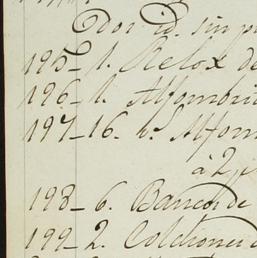 Dos id. sin
195_ 1. Relox de
196_ 1. Alfombri
197_ 16. vs. Alfom
à 2,
198_ 6. Bancos de
199_ 2. Colchones